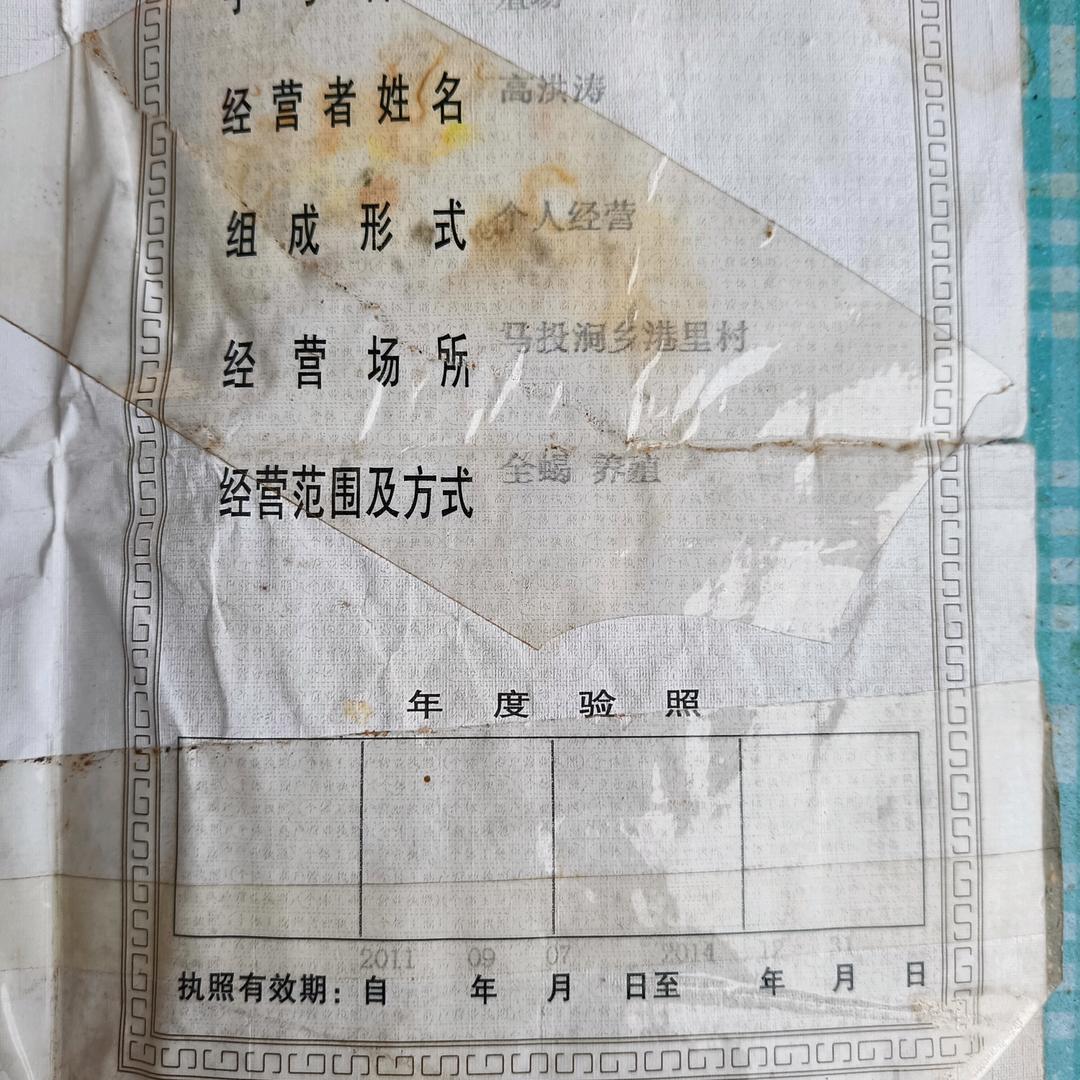 经营者姓名 高洪涛
组成形式 个人经营
经营场所 马投涧乡港里村
经营范围及方式 全蝎 养殖
年度验照
2011 09 07 2014 12 31
执照有效期：自 年 月 日至 年 月 日